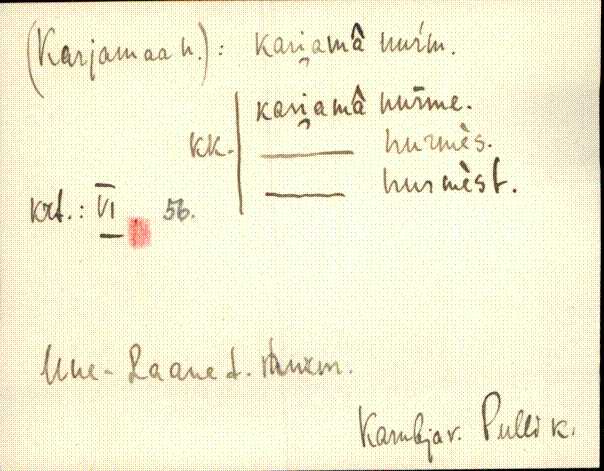 (Karjamaa n.): kari̯amâ nurm.
kk. kari̯amâ nurme.
——— nurmès.
——— nurmèst.
krt.: VI 56.
Uue-Raane t. nurm.
Kambja v. Pulli k.